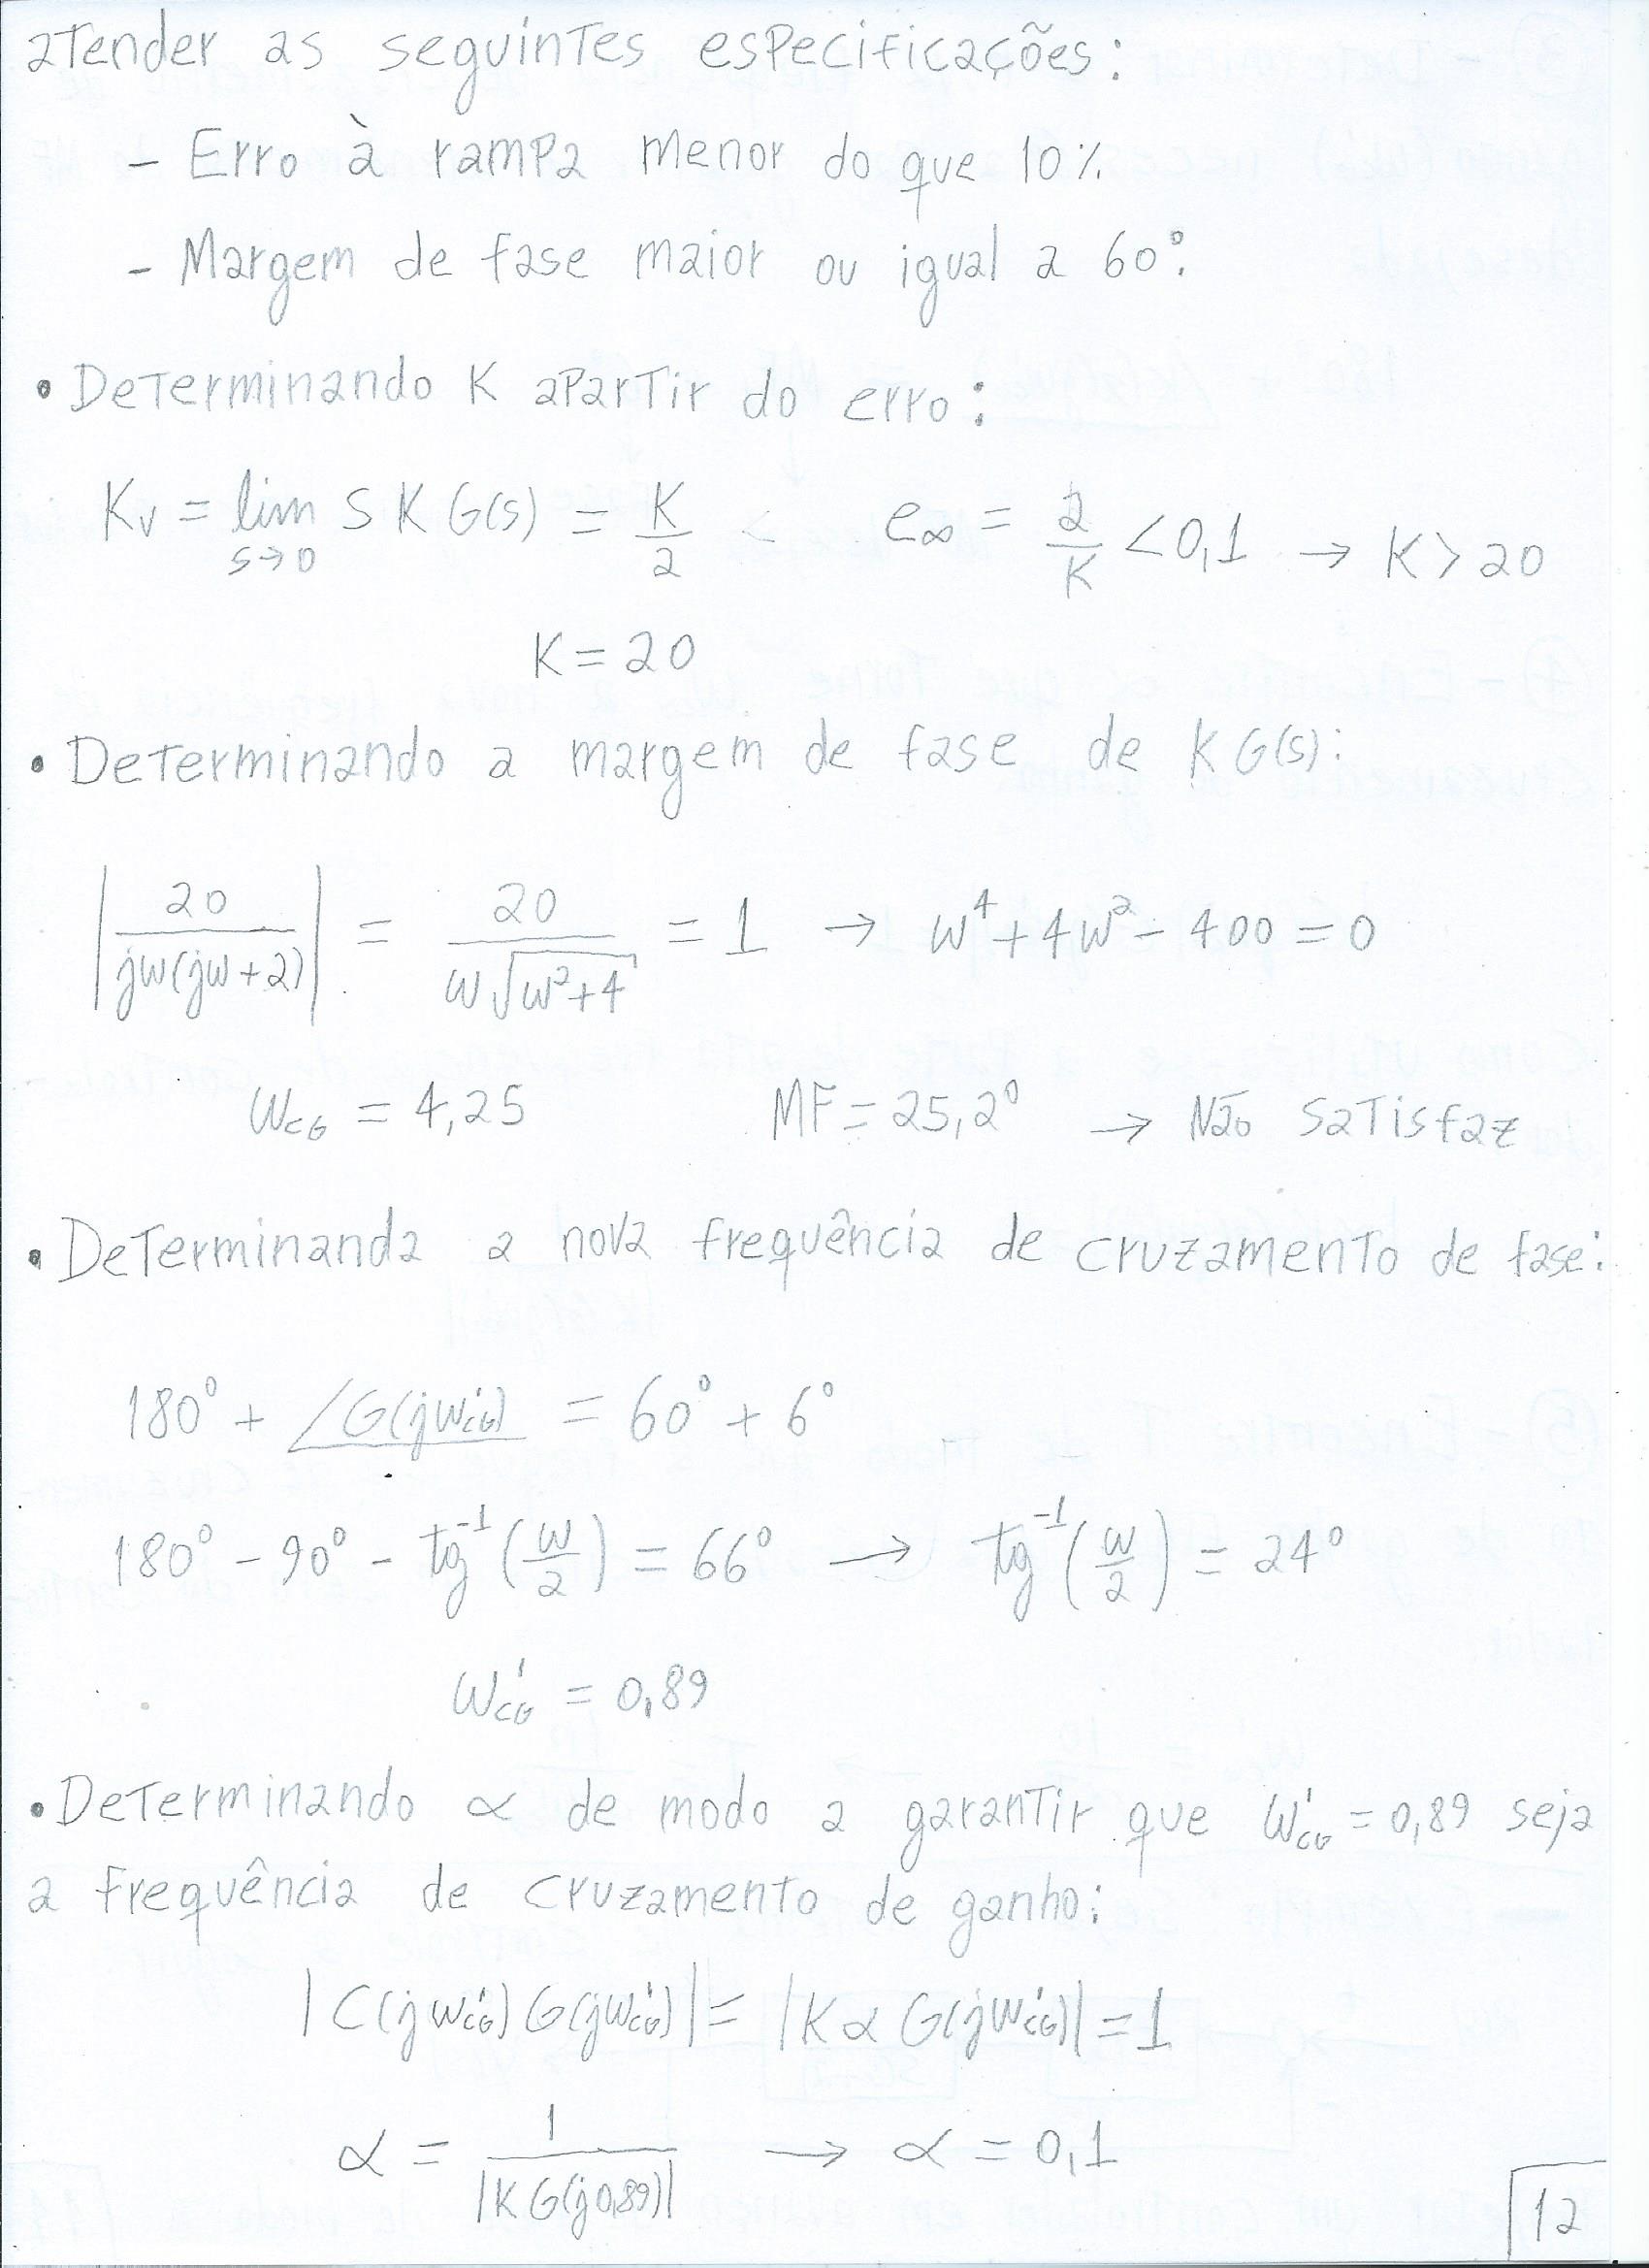 atender as seguintes especificações:
- Erro à rampa menor do que 10%
- Margem de fase maior ou igual a 60°.
• Determinando K apartir do erro:
Kv = lim s→0 S K G(s) = K/2    e∞ = 2/K < 0,1 → K > 20
K = 20
• Determinando a margem de fase de K G(s):
|20/(jw(jw+2))| = 20/(w√(w²+4)) = 1 → w⁴ + 4w² - 400 = 0
WCG = 4,25    MF = 25,2° → Não satisfaz
• Determinanda a nova frequência de cruzamento de fase:
180° + ∠G(jw'CG) = 60° + 6°
180° - 90° - tg⁻¹(w/2) = 66° → tg⁻¹(w/2) = 24°
W'CG = 0,89
• Determinando α de modo a garantir que W'CG = 0,89 seja
a frequência de cruzamento de ganho:
|C(jw'CG) G(jw'CG)| = |K α G(jw'CG)| = 1
α = 1/|K G(j0,89)| → α = 0,1
12